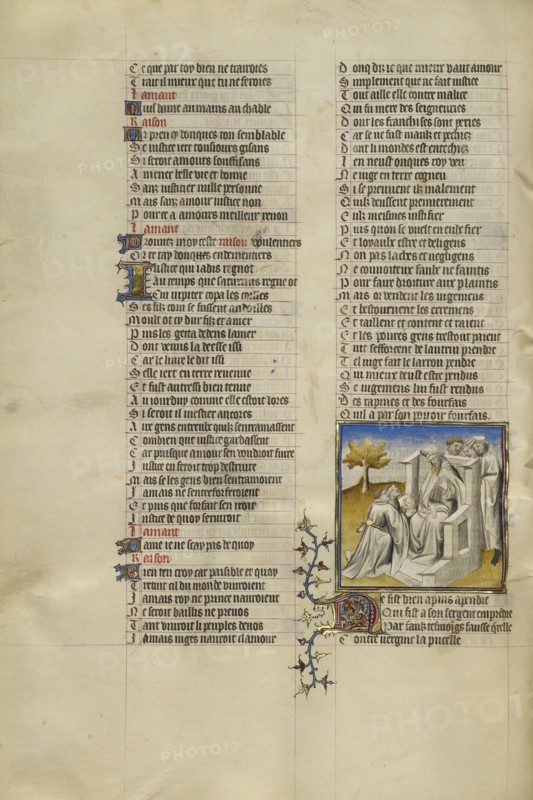 Ce que par toy bien ne trairoies
Trait il mieux que tu ne feroies
lamant
Quil dame au mains au chable
Raison
Or pren cy donques ton semblable
Se iustice iert tousiours gisans
Si seroit amours souffisans
A mener belle vie et bonne
Sanz iusticier nulle personne
Mais sanz amour iustice non
Pour ce a amours meilleur renon
lamant
Prouues moy ceste raison voulentiers
Or te tay donques endementiers
Iustice qui iadis regnot
Au temps que saturnus regne ot
Cui iupiter copa les
Ses filz com se fussent andoilles
Moult ot cy dur filz et amer
Puis les getta dedens la mer
Dont venus la deesse issi
Car le liure le dit issi
Selle iert en terre reuenue
Et fust autressi bien tenue
Au iourduy comme elle estoit lores
Si seroit il mestier ancores
Aus gens entreulx quilz sentramassent
Combien que iustice gardassent
Car puisque amour sen voudroit fuire
Iustice en feroit trop destruire
Mais se les gens bien sentramoient
Iamais ne sentreforferoient
Et puis que forfait sen iroit
Iustice de quoy seruiroit
lamant
Dame ie ne scay pas de quoy
Raison
Bien ten croy car paisible et quoy
Trestuit cil du monde viuroient
Iamais roy ne prince nauroient
Ne seroit baillis ne preuos
Tant viuroit li peuples deuos
Iamais iuges nauroit clamour
Donq di ie que mieux vaut amour
Simplement que ne fait iustice
Tout aille elle contre malice
Qui fu mere des seigneuries
Dont les franchises sont peries
Car se ne fust maulx et pechiez
Dont li mondes est entechiez
Len neust onques roy veu
Ne iuge en terre cogneu
Si se preuuent ilz malement
Quilz deussent premierement
Eulx meismes iustifier
Puis quon se vuelt en eulx fier
Et loyaulx estre et deligens
Non pas laches et negligens
Ne conuoiteux faulx ne faintis
Pour faire droiture aux plaintis
Mais or vendent les iugemens
Et bestournent les erremens
Et taillent et content et raient
Et les poures gens trestout paient
Tuit sefforcent de lautrui prendre
Tel iuge fait le larron pendre
Qui mieux deust estre pendus
Se iugemens lui fust rendus
Des rapines et des fourfais
Quil a par son pouoir fourfais
Ne fist bien apius apendre
Qui fist a son sergent emprendre
Par faulx tesmoigs fausse querelle
Contre vergine la pucelle
PHOTO12